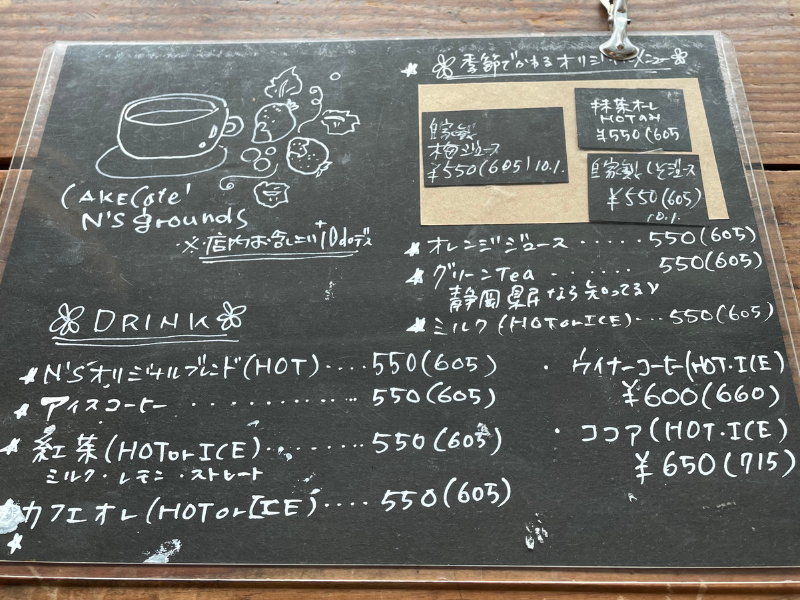 CAKE Cafe'
N'S grounds
DRINK
N'Sオリジナルブレンド(HOT)‥‥550(605)
アイスコーヒー ‥‥‥‥‥‥ 550(605)
紅茶(HOTorICE)‥‥‥‥550(605)
ミルク・レモン・ストレート
カフェオレ(HOTorICE)‥‥550(605)
季節でかわるオリジ メニュー
自家製
梅ジュース
¥550(605)10.1.
抹茶オレ
HOTのみ
¥550(605
自家製しそジュース
¥550(605)
10.1.
オレンジジュース ‥‥‥ 550(605)
グリーンTea ‥‥‥ 550(605)
静岡県民なら知ってる
ミルク(HOTorICE)‥‥550(605)
・ウイナーコーヒー(HOT・ICE)
¥600(660)
・ココア(HOT・ICE)
¥650(715)